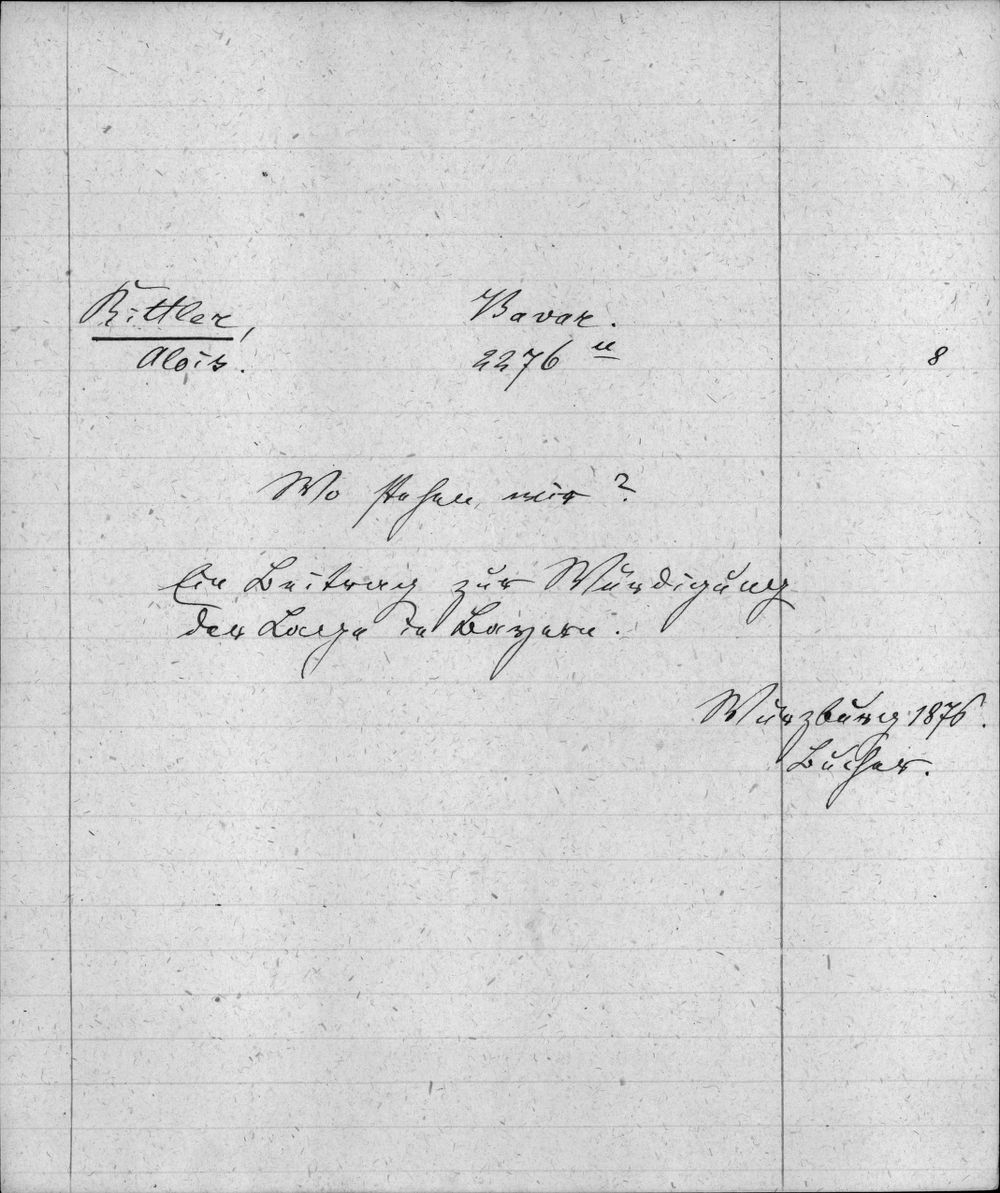 Rittler,
Alois.
Bavar.
2276 u
8
Wo stehen wir?
Ein Beitrag zur Würdigung
der Lage in Bayern.
Würzburg 1876.
Bucher.